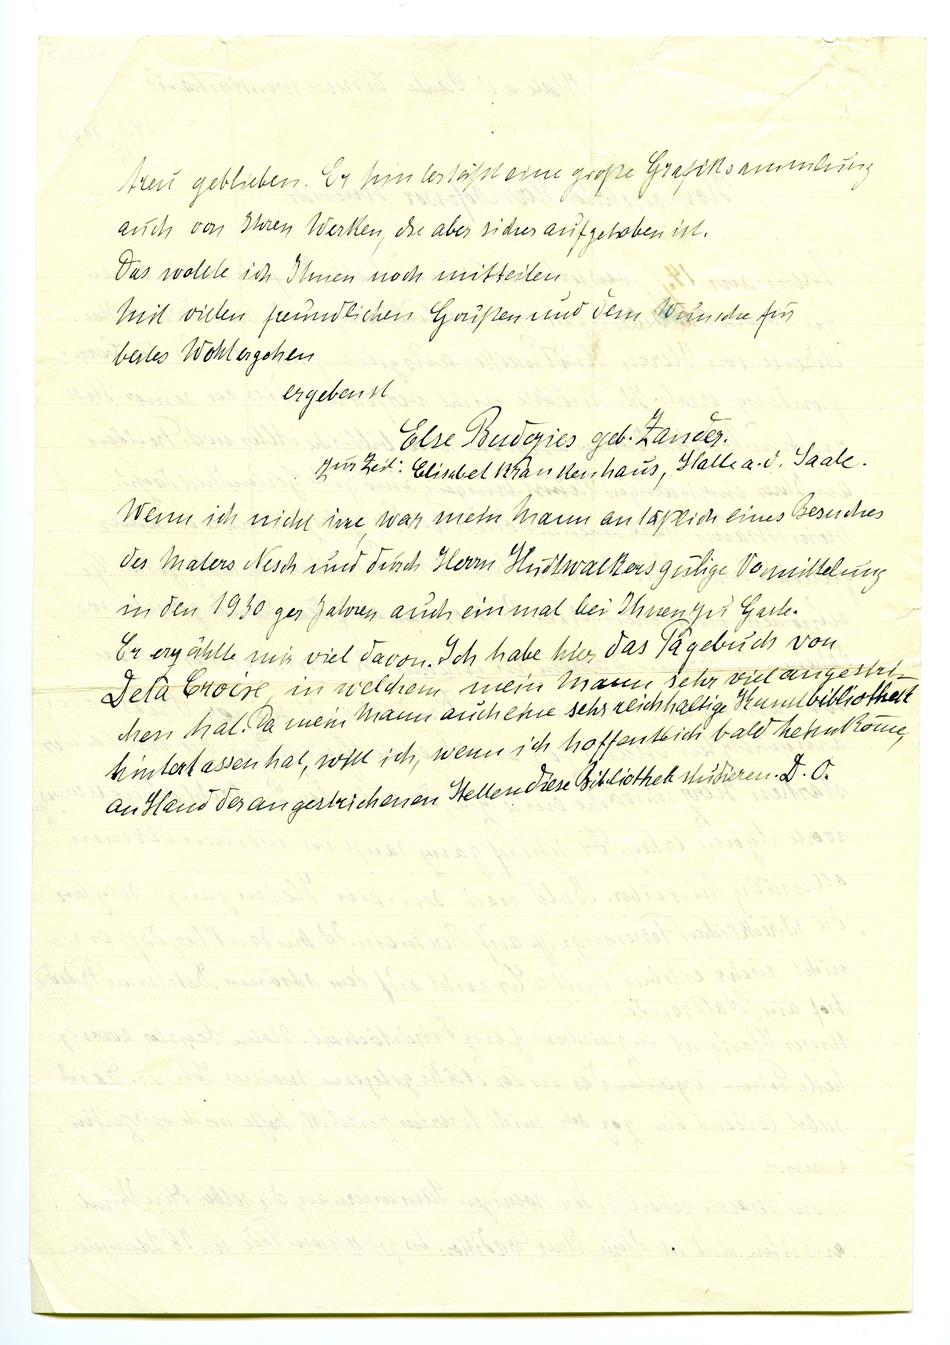 treu geblieben. Er hinterläßt eine große Grafiksammlung
auch von Ihren Werken, die aber sicher aufgehoben ist.
Das wollte ich Ihnen noch mitteilen
Mit vielen freundlichen Grüßen und dem Wunsche für
bestes Wohlergehen
ergebenst
Else Buderies geb. Zander.
zur Zeit: Elisabet Krankenhaus, Halle a. d. Saale.
Wenn ich nicht irre, war mein Mann anläßlich eines Besuches
des Malers Nesch und durch Herrn Hudtwalkers gütige Vermittelung
in den 1930 ger Jahren auch einmal bei Ihnen zu Gast.
Er erzählte mir viel davon. Ich habe hier das Tagebuch von
Dela Croixe, in welchem mein Mann sehr viel angestri-
chen hat. Da mein Mann auch eine sehr reichhaltige Kunstbibliothek
hinterlassen hat, will ich, wenn ich hoffentlich bald heim komme,
an Hand der angestrichenen Stellen diese Bibliothek studieren. D. O.